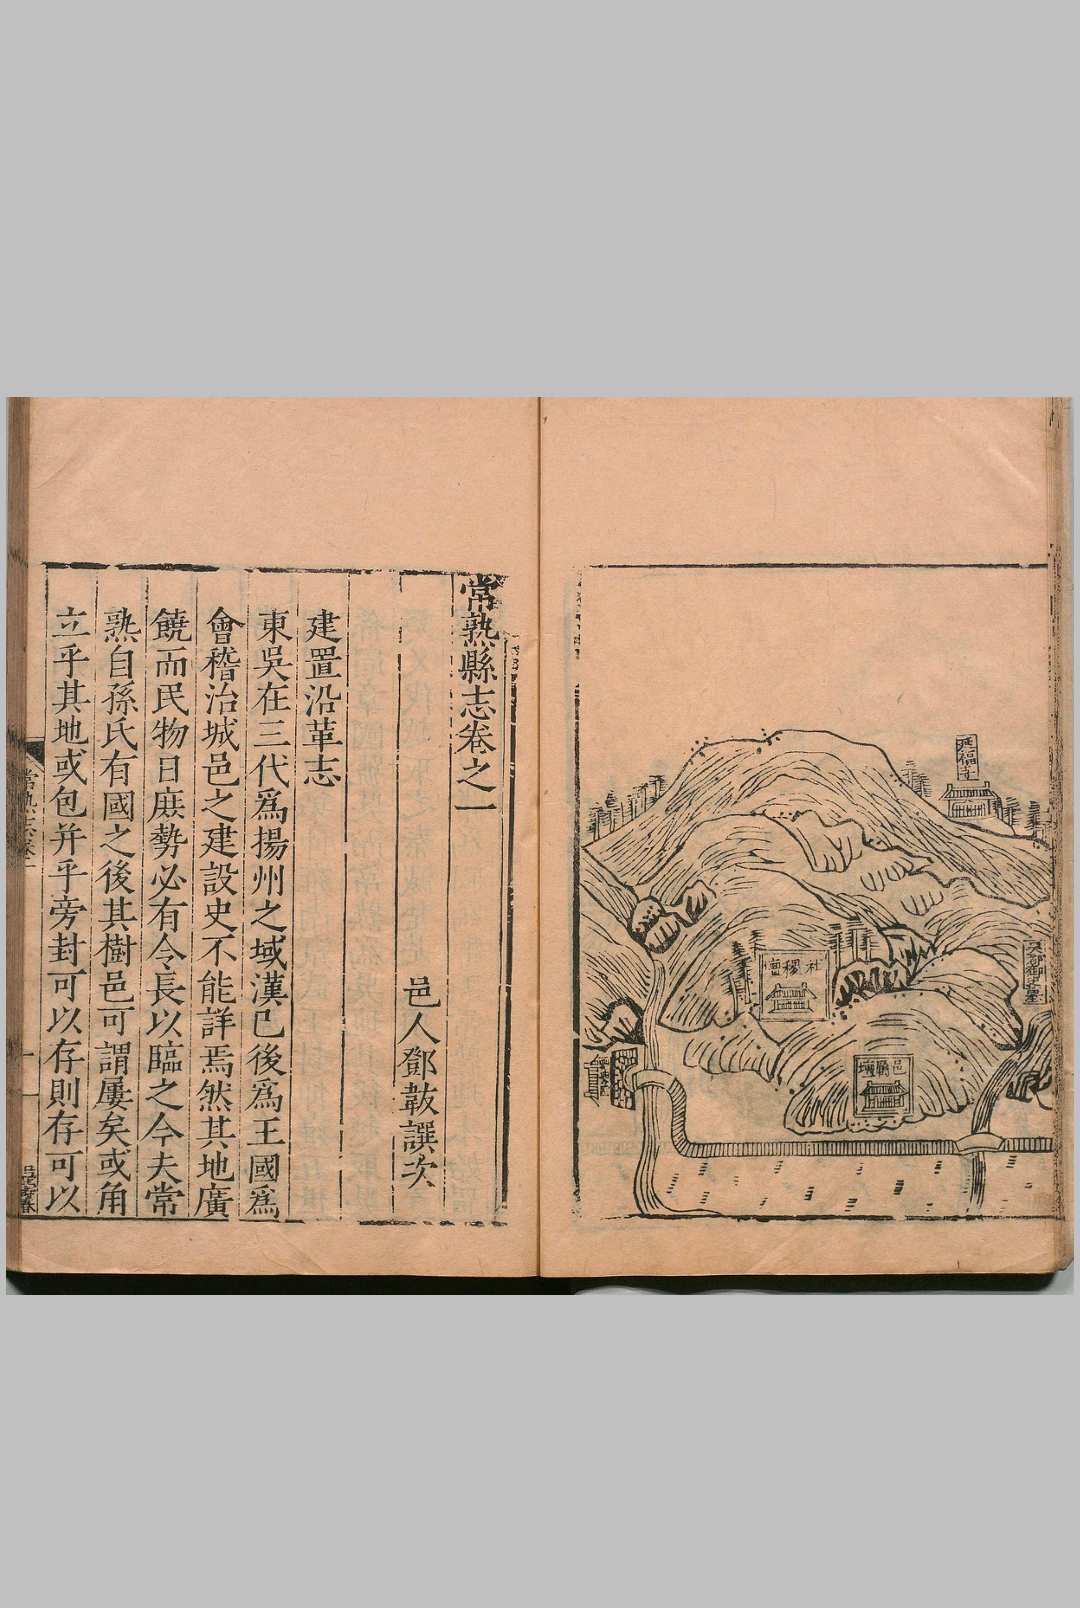 延福寺
社稷壇
邑厲壇
常熟縣志卷之一
邑人鄧韍譔次
建置沿革志
東吳在三代爲揚州之域漢已後爲王國爲
會稽治城邑之建設史不能詳焉然其地廣
饒而民物日庶勢必有令長以臨之今夫常
熟自孫氏有國之後其樹邑可謂屢矣或角
立乎其地或包并乎旁封可以存則存可以
常熟志卷一